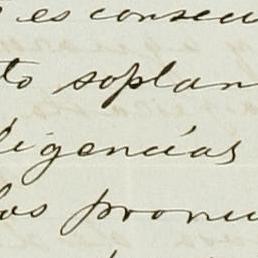 es consecu
to soplan
ligencias
los pronu